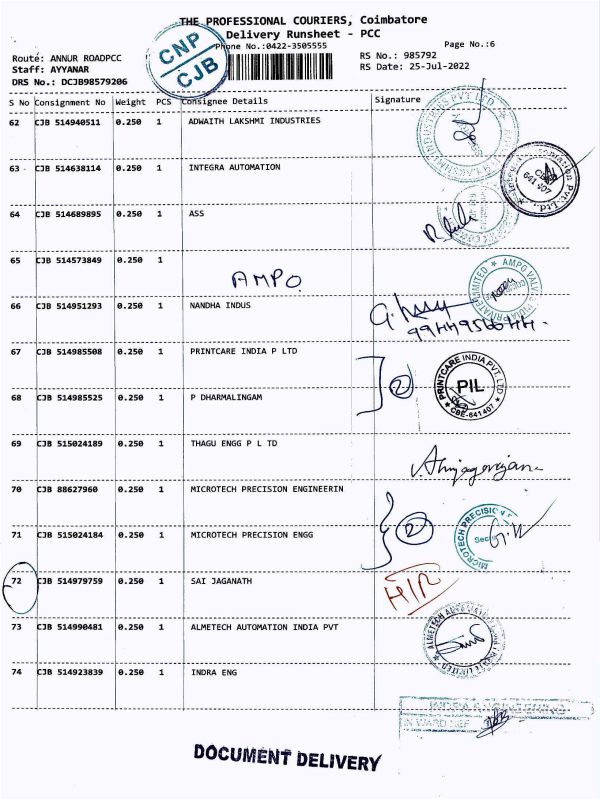 THE PROFESSIONAL COURIERS, Coimbatore
Delivery Runsheet - PCC
CNP
CJB
Phone No.:0422-3505555
Page No.:6
Route: ANNUR ROADPCC
RS No.: 985792
Staff: AYYANAR
RS Date: 25-Jul-2022
DRS No.: DCJB98579206
S No Consignment No Weight PCS Consignee Details Signature
62 CJB 514940511 0.250 1 ADWAITH LAKSHMI INDUSTRIES
63 CJB 514638114 0.250 1 INTEGRA AUTOMATION
641 407
64 CJB 514689895 0.250 1 ASS
65 CJB 514573849 0.250 1
AMPO
66 CJB 514951293 0.250 1 NANDHA INDUS
67 CJB 514985508 0.250 1 PRINTCARE INDIA P LTD
2
PRINTCARE INDIA PVT. LTD
PIL
CBE-641407
68 CJB 514985525 0.250 1 P DHARMALINGAM
69 CJB 515024189 0.250 1 THAGU ENGG P L TD
70 CJB 88627960 0.250 1 MICROTECH PRECISION ENGINEERIN
2
MICROTECH PRECISION
71 CJB 515024184 0.250 1 MICROTECH PRECISION ENGG
72 CJB 514979759 0.250 1 SAI JAGANATH
73 CJB 514990481 0.250 1 ALMETECH AUTOMATION INDIA PVT
74 CJB 514923839 0.250 1 INDRA ENG
INDRA ENGINEERING
DOCUMENT DELIVERY